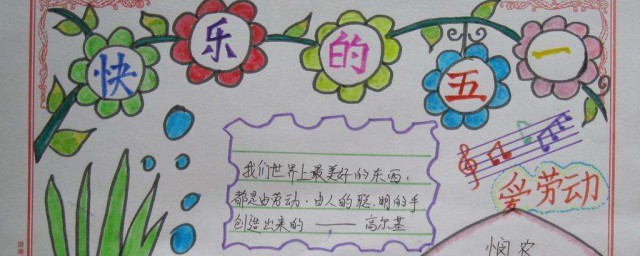 快乐的五一
我们世界上最美好的东西,
都是由劳动·由人的聪明的手
创造出来的——高尔基
爱劳动
悯农